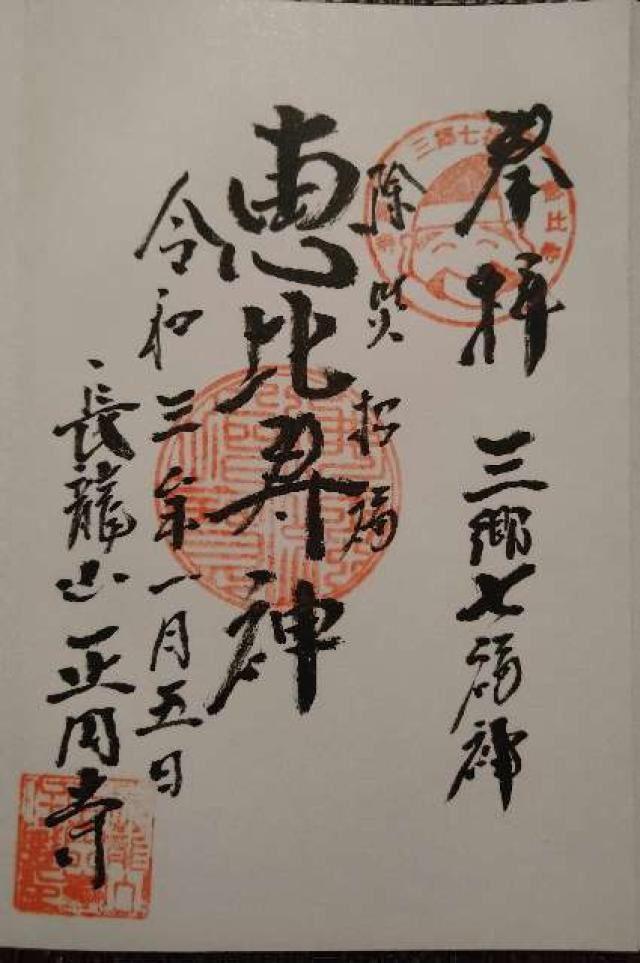 奉拝
三郷七福神
除災
招福
恵比寿神
令和三年一月五日
長龍山正円寺
三郷七